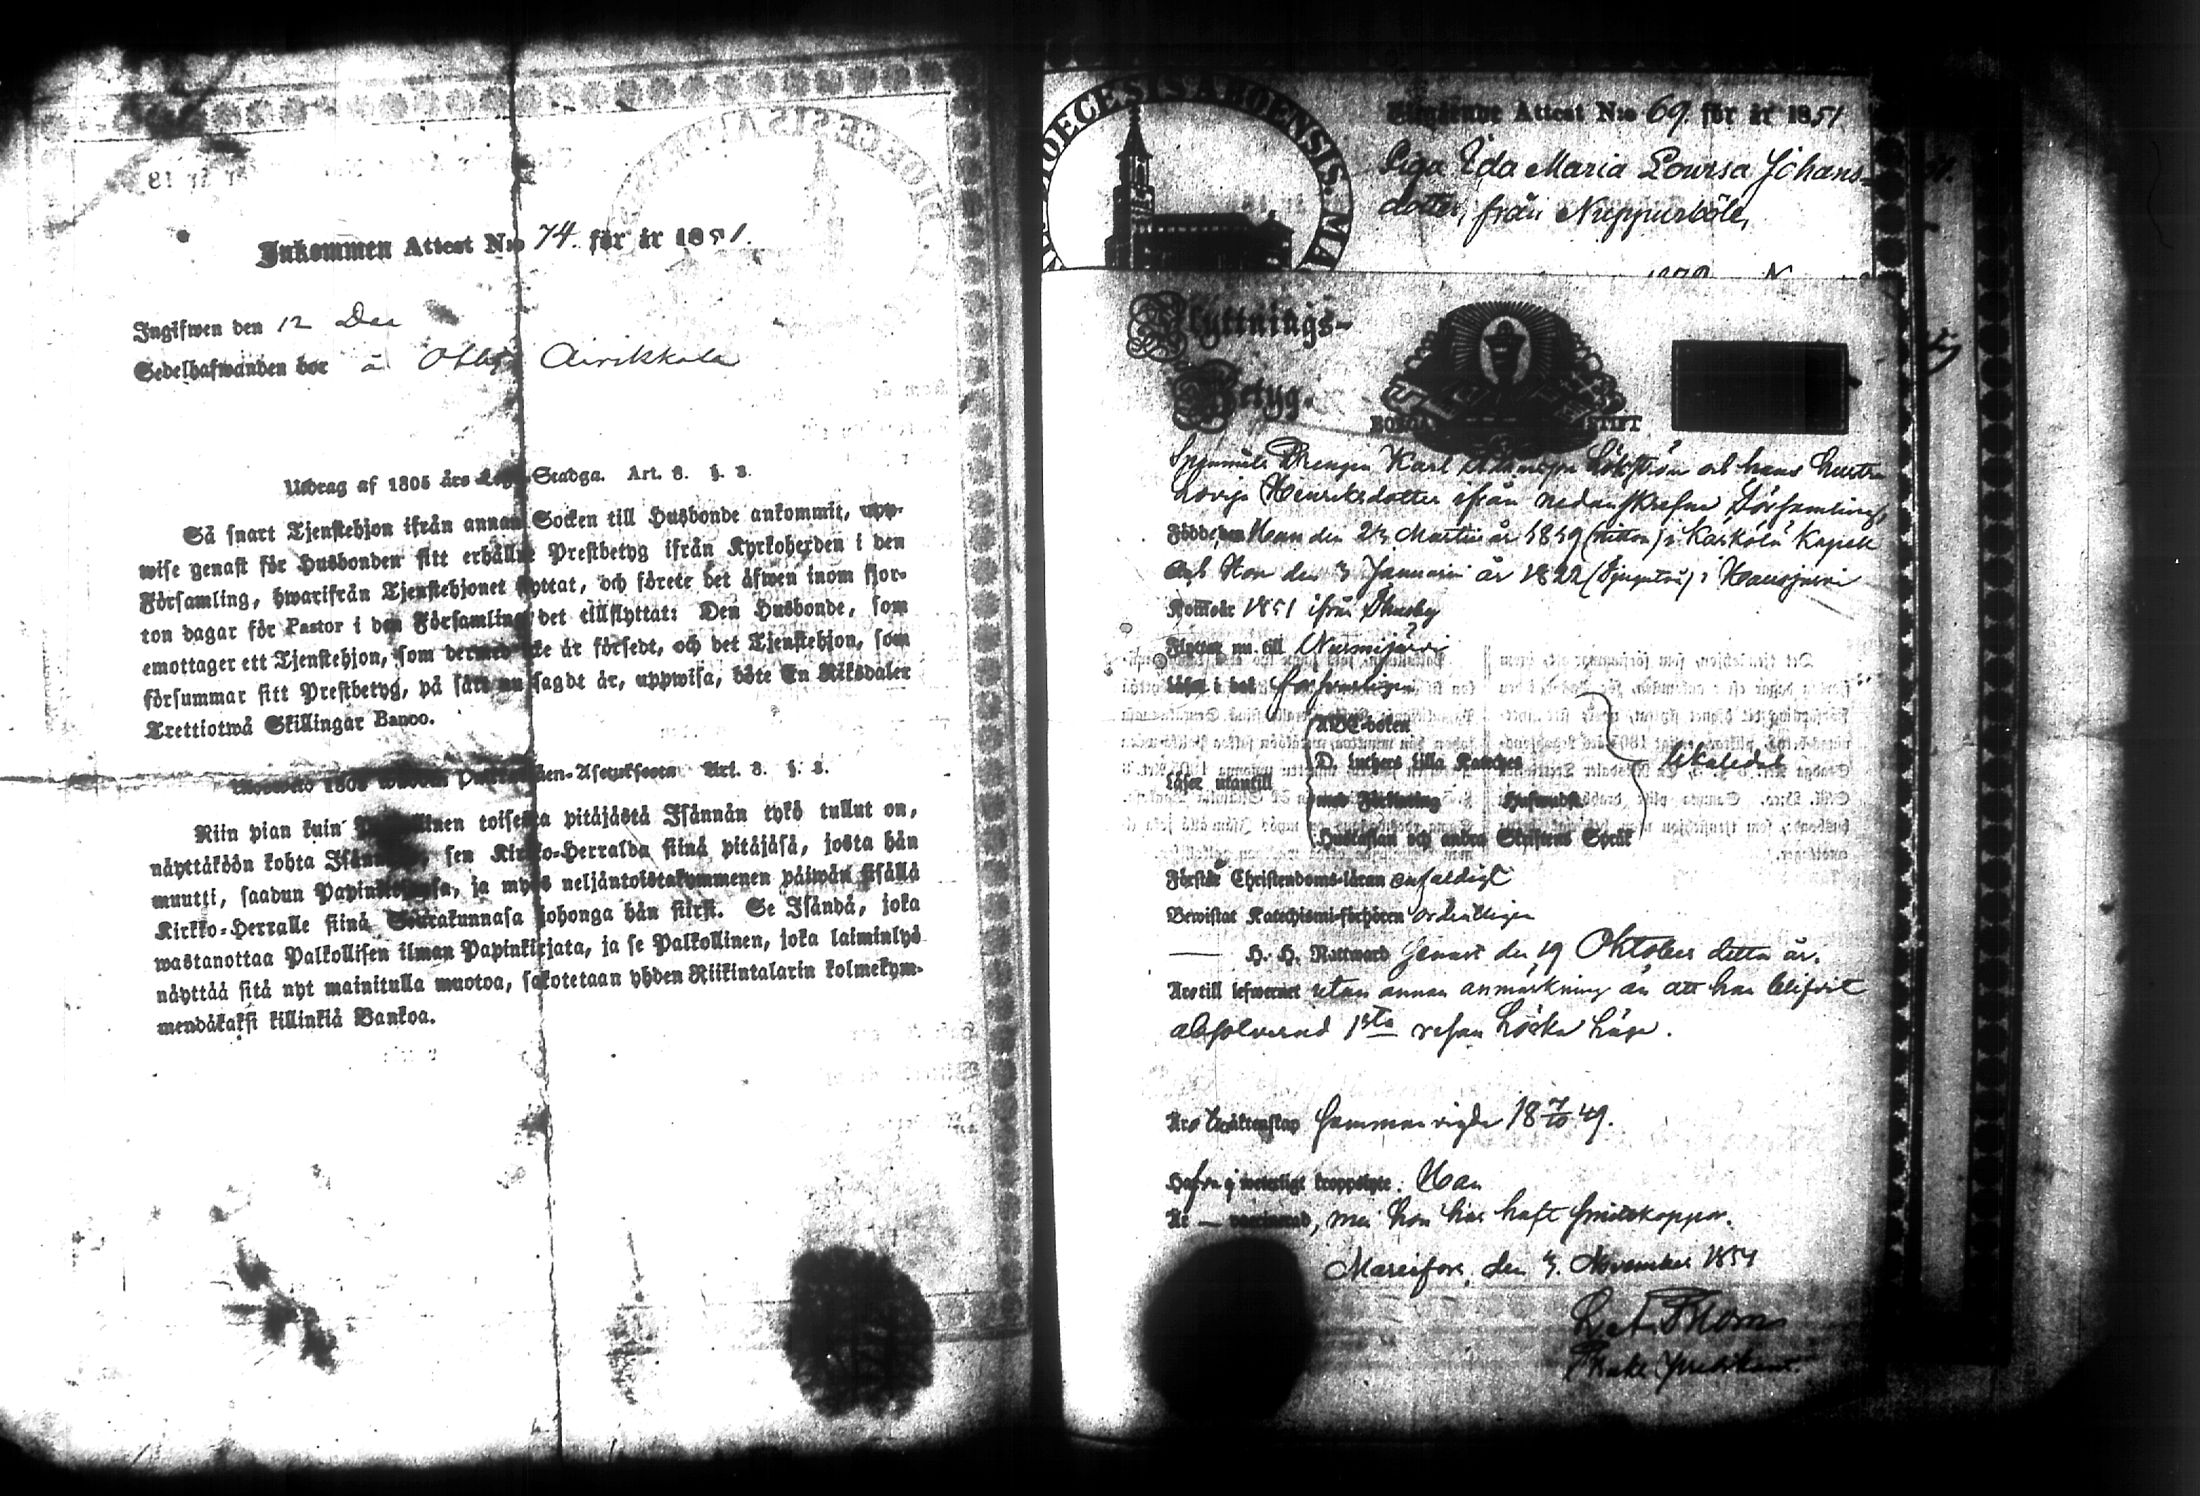 Inkommen Attest N:o 74. för år 1851.
Ingifwen den 12 Dec
Sedelhafwanden bor å Ollis Airikkala
Utdrag af 1805 års Lego-Stadga. Art. 8. §. 3.
Så snart Tjenstehjon ifrån annan Socken till Husbonde ankommit, upp-
wise genast för Husbonden sitt erhållne Prestbetyg ifrån Kyrkoherden i den
Församling, hwarifrån Tjenstehjonet flyttat, och förete det äfwen inom fjor-
ton dagar för Pastor i den Församling det tillflyttat: Den Husbonde, som
emottager ett Tjenstehjon, som dermed icke är försedt, och det Tjenstehjon, som
försummar sitt Prestbetyg, på sätt nu sagdt är, uppwisa, böte En Riksdaler
Trettiotwå Skillingar Banco.
1805 Art. 8. §. 3.
Niin pian kuin Palkollinen toisesta pitäjästä Isännän tykö tullut on,
näyttäköön kohta Isännälle, sen Kirkko-Herralda siinä pitäjäsä, josta hän
muutti, saadun Papinkirjansa, ja myös neljäntoistakymmenen päiwän sisällä
Kirkko-Herralle siinä Seurakunnasa johonga hän siirsi. Se Isändä, joka
wastanottaa Palkollisen ilman Papinkirjata, ja se Palkollinen, joka laiminlyö
näyttää sitä nyt mainitulla muotoa, sakotetaan yhden Riikintalarin kolmekym-
mendäkaksi killinkiä Bankoa.
DIOECESIS ABOENSIS. MA
Utgående Attest N:o 69. för år 1851
Piga Ida Maria Poursa Johans-
dotter, från Nuppusböle,
Flyttnings-
Betyg.
BORGÅ STIFT
Drengen Karl Adamsson Löfström och hans hustru
Lovisa Henriksdotter ifrån nedanskrefne Församling,
Född, Han den 23 Martii år 1819 (nitton) i Kärkölä Kapell
och Hon den 3 Januarii år 1822 (tjugutvå) i Hausjärvi
Kommer 1851 ifrån Thusby
Flyttar nu till Nurmijärvi
Läser i bok försvarligen
Läser utantill
ABC-boken
D. Luthers Lilla Kateches
med Förklaring Hufwudst.
Hustaflan och andra Skriftens Språk
Förstår Christendoms-läran enfaldigt
Bewistat Katechismi-förhören ordentligen
H. H. Nattward senast den 19 Oktober detta år.
Är till lefwernet utan annan anmärkning än att han blifvit
absolverad 1sta resan
Är till Äktenskap Sammanvigde 18 7/10 49.
Hafva ej weterligt kroppslyte. Han
Är — vaccinerad, men hon har haft smittkoppor.
den 3. November 1851